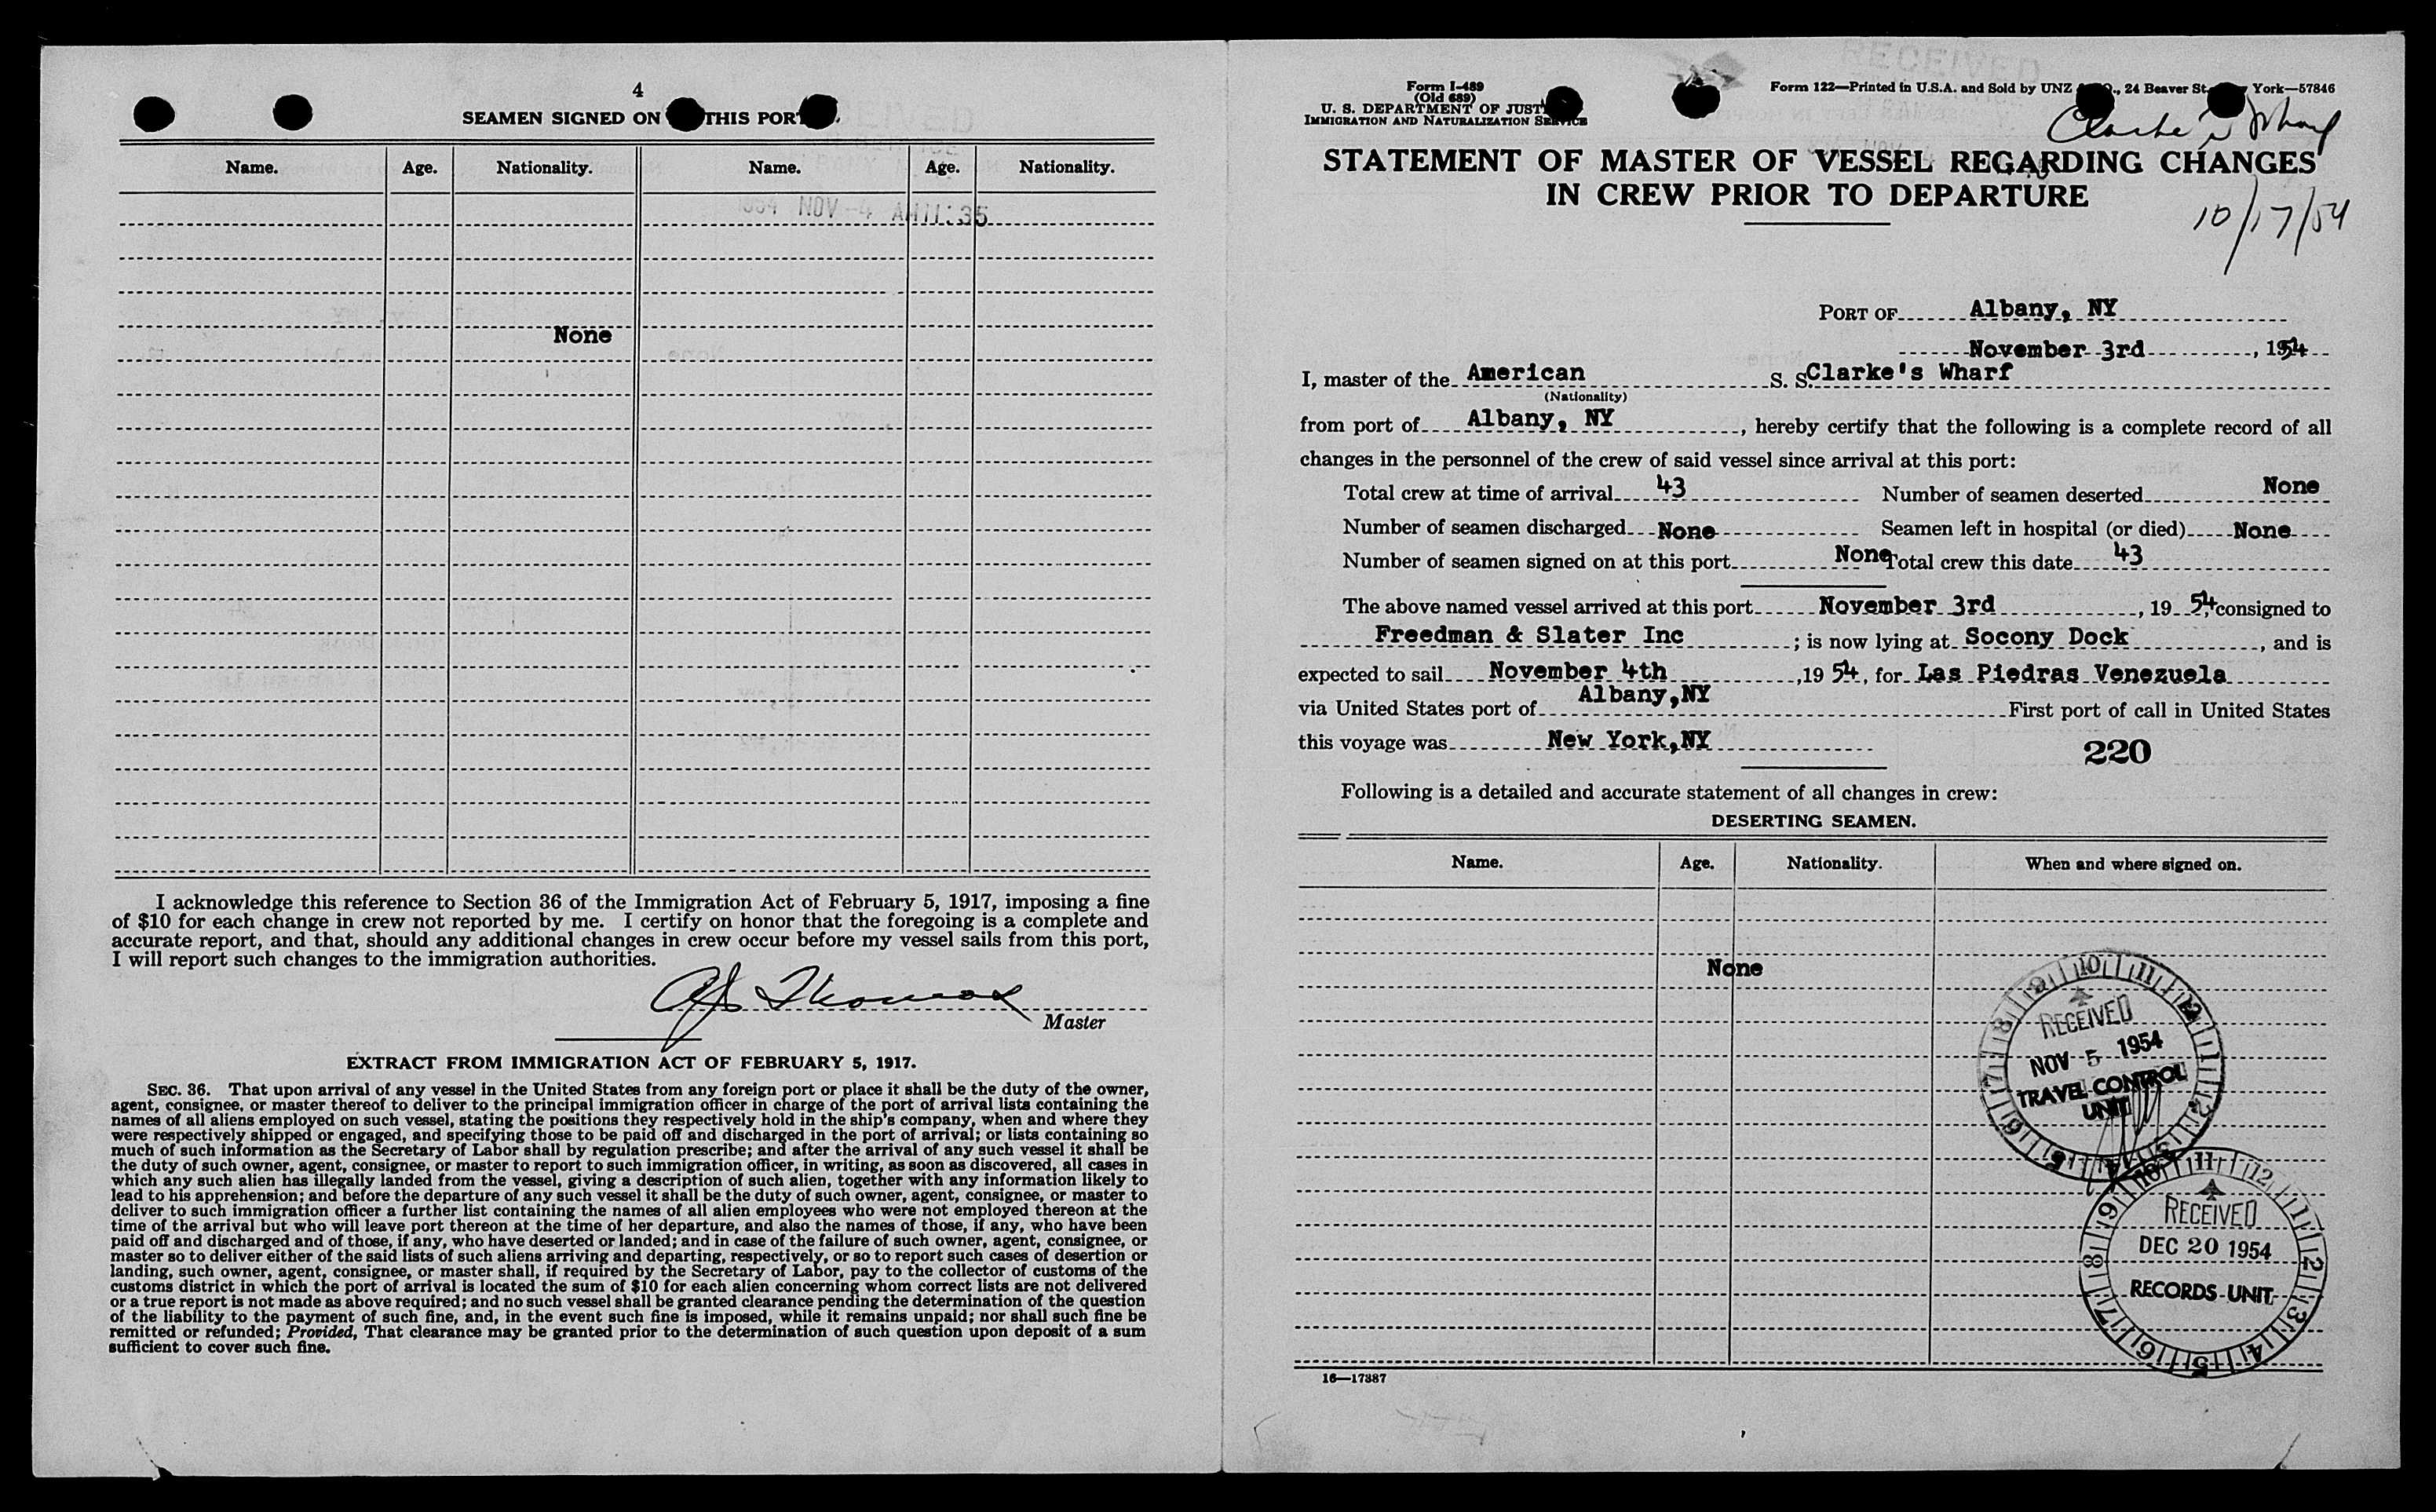 4
SEAMEN SIGNED ON THIS PORT
Name. Age. Nationality. Name. Age. Nationality.
NOV -4 AM 11:35
None
I acknowledge this reference to Section 36 of the Immigration Act of February 5, 1917, imposing a fine
of $10 for each change in crew not reported by me. I certify on honor that the foregoing is a complete and
accurate report, and that, should any additional changes in crew occur before my vessel sails from this port,
I will report such changes to the immigration authorities.
Thomas
Master
EXTRACT FROM IMMIGRATION ACT OF FEBRUARY 5, 1917.
SEC. 36. That upon arrival of any vessel in the United States from any foreign port or place it shall be the duty of the owner,
agent, consignee, or master thereof to deliver to the principal immigration officer in charge of the port of arrival lists containing the
names of all aliens employed on such vessel, stating the positions they respectively hold in the ship's company, when and where they
were respectively shipped or engaged, and specifying those to be paid off and discharged in the port of arrival; or lists containing so
much of such information as the Secretary of Labor shall by regulation prescribe; and after the arrival of any such vessel it shall be
the duty of such owner, agent, consignee, or master to report to such immigration officer, in writing, as soon as discovered, all cases in
which any such alien has illegally landed from the vessel, giving a description of such alien, together with any information likely to
lead to his apprehension; and before the departure of any such vessel it shall be the duty of such owner, agent, consignee, or master to
deliver to such immigration officer a further list containing the names of all alien employees who were not employed thereon at the
time of the arrival but who will leave port thereon at the time of her departure, and also the names of those, if any, who have been
paid off and discharged and of those, if any, who have deserted or landed; and in case of the failure of such owner, agent, consignee, or
master so to deliver either of the said lists of such aliens arriving and departing, respectively, or so to report such cases of desertion or
landing, such owner, agent, consignee, or master shall, if required by the Secretary of Labor, pay to the collector of customs of the
customs district in which the port of arrival is located the sum of $10 for each alien concerning whom correct lists are not delivered
or a true report is not made as above required; and no such vessel shall be granted clearance pending the determination of the question
of the liability to the payment of such fine, and, in the event such fine is imposed, while it remains unpaid; nor shall such fine be
remitted or refunded; Provided, That clearance may be granted prior to the determination of such question upon deposit of a sum
sufficient to cover such fine.
RECEIVED
Form I-489
(Old 689)
U. S. DEPARTMENT OF JUST
IMMIGRATION AND NATURALIZATION SERVICE
Form 122—Printed in U.S.A. and Sold by UNZ ., 24 Beaver St. York—57846
Clarke's Wharf
STATEMENT OF MASTER OF VESSEL REGARDING CHANGES
IN CREW PRIOR TO DEPARTURE
10/17/54
PORT OF Albany, NY
November 3rd, 1954
I, master of the American S. S. Clarke's Wharf
(Nationality)
from port of Albany, NY, hereby certify that the following is a complete record of all
changes in the personnel of the crew of said vessel since arrival at this port:
Total crew at time of arrival 43 Number of seamen deserted None
Number of seamen discharged None Seamen left in hospital (or died) None
Number of seamen signed on at this port None Total crew this date 43
The above named vessel arrived at this port November 3rd, 19 54, consigned to
Freedman & Slater Inc; is now lying at Socony Dock, and is
expected to sail November 4th, 19 54, for Las Piedras Venezuela
via United States port of Albany,NY First port of call in United States
this voyage was New York,NY
220
Following is a detailed and accurate statement of all changes in crew:
DESERTING SEAMEN.
Name. Age. Nationality. When and where signed on.
None
10 11 12 1 2 3 4 5 6 7 8 9
RECEIVED
NOV 5 1954
TRAVEL CONTROL
UNIT
10 11 12 1 2 3 4 5 6 7 8 9
RECEIVED
DEC 20 1954
RECORDS UNIT
16—17387